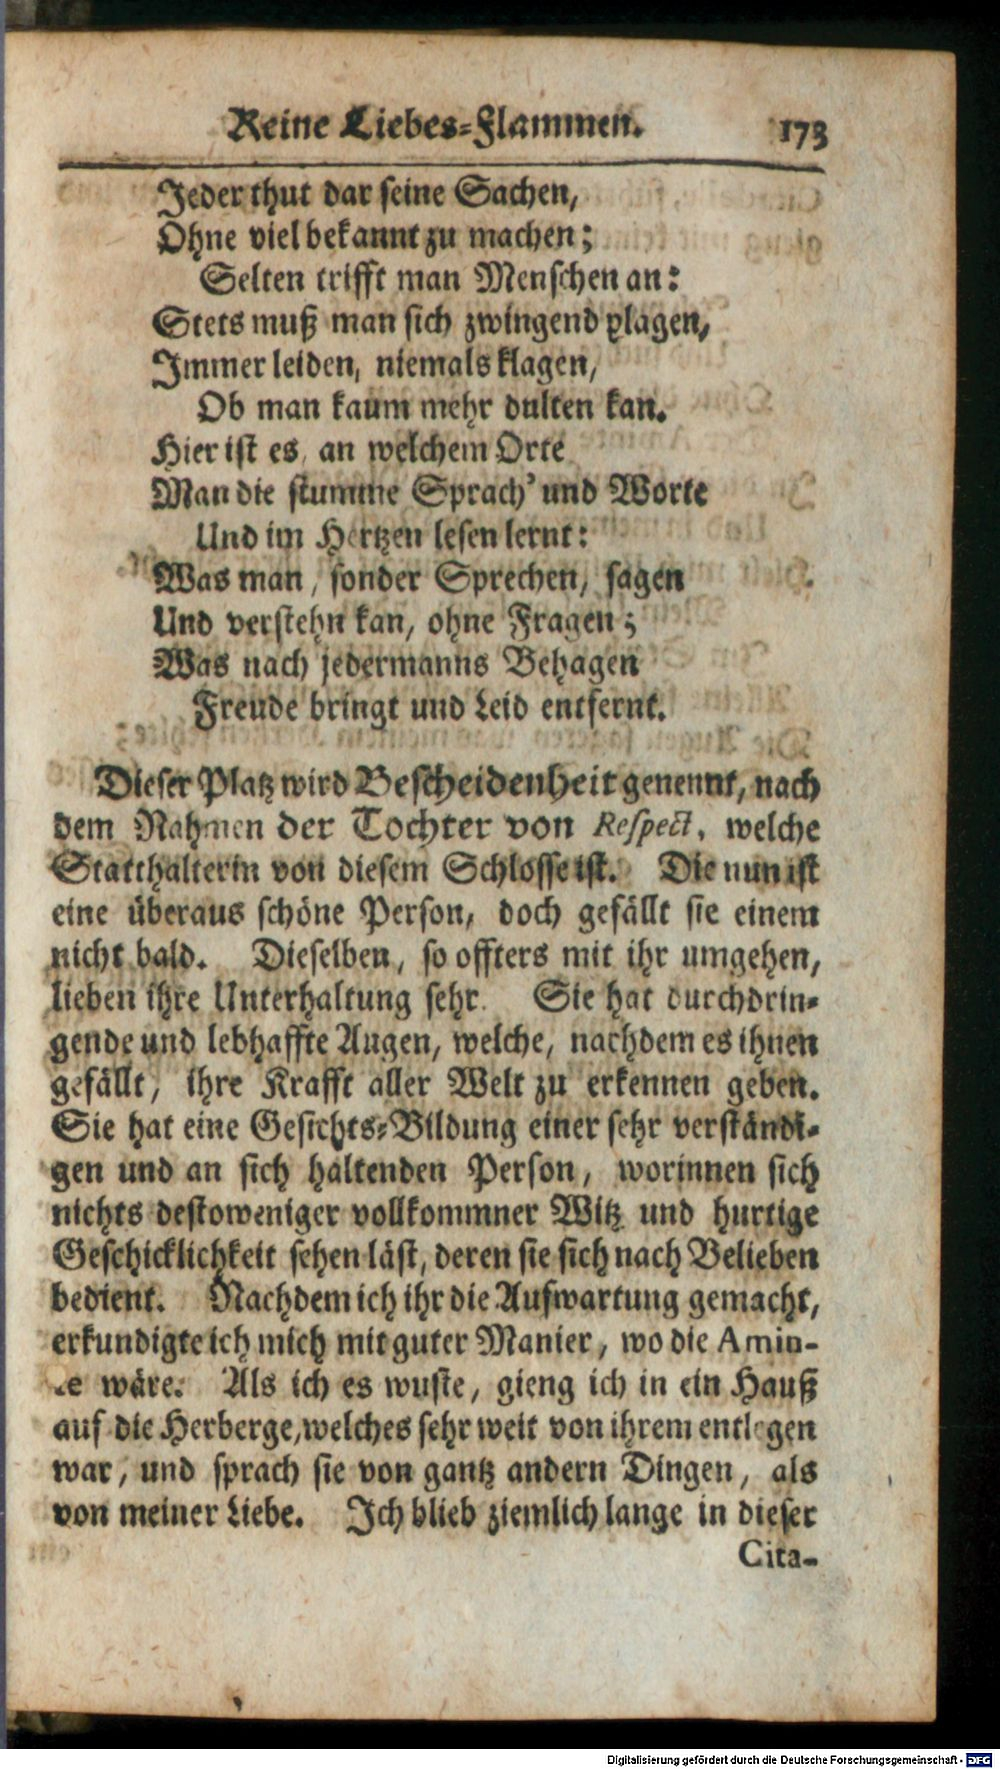 Reine Liebes-Flammen. 173
Jeder thut dar seine Sachen,
Ohne viel bekannt zu machen;
Selten trifft man Menschen an:
Stets muß man sich zwingend plagen,
Immer leiden, niemals klagen,
Ob man kaum mehr dulten kan.
Hier ist es, an welchem Orte
Man die stumme Sprach' und Worte
Und im Hertzen lesen lernt:
Was man, sonder Sprechen, sagen
Und verstehn kan, ohne Fragen;
Was nach jedermanns Behagen
Freude bringt und Leid entfernt.
Dieser Platz wird Bescheidenheit genennt, nach
dem Nahmen der Tochter von Respect, welche
Statthalterin von diesem Schlosse ist. Die nun ist
eine überaus schöne Person, doch gefällt sie einem
nicht bald. Dieselben, so offters mit ihr umgehen,
lieben ihre Unterhaltung sehr. Sie hat durchdrin-
gende und lebhaffte Augen, welche, nachdem es ihnen
gefällt, ihre Krafft aller Welt zu erkennen geben.
Sie hat eine Gesichts-Bildung einer sehr verständi-
gen und an sich haltenden Person, worinnen sich
nichts destoweniger vollkommner Witz und hurtige
Geschicklichkeit sehen läst, deren sie sich nach Belieben
bedient. Nachdem ich ihr die Aufwartung gemacht,
erkundigte ich mich mit guter Manier, wo die Amin-
te wäre. Als ich es wuste, gieng ich in ein Hauß
auf die Herberge, welches sehr weit von ihrem entlegen
war, und sprach sie von gantz andern Dingen, als
von meiner Liebe. Ich blieb ziemlich lange in dieser
Cita-
Digitalisierung gefördert durch die Deutsche Forschungsgemeinschaft - DFG